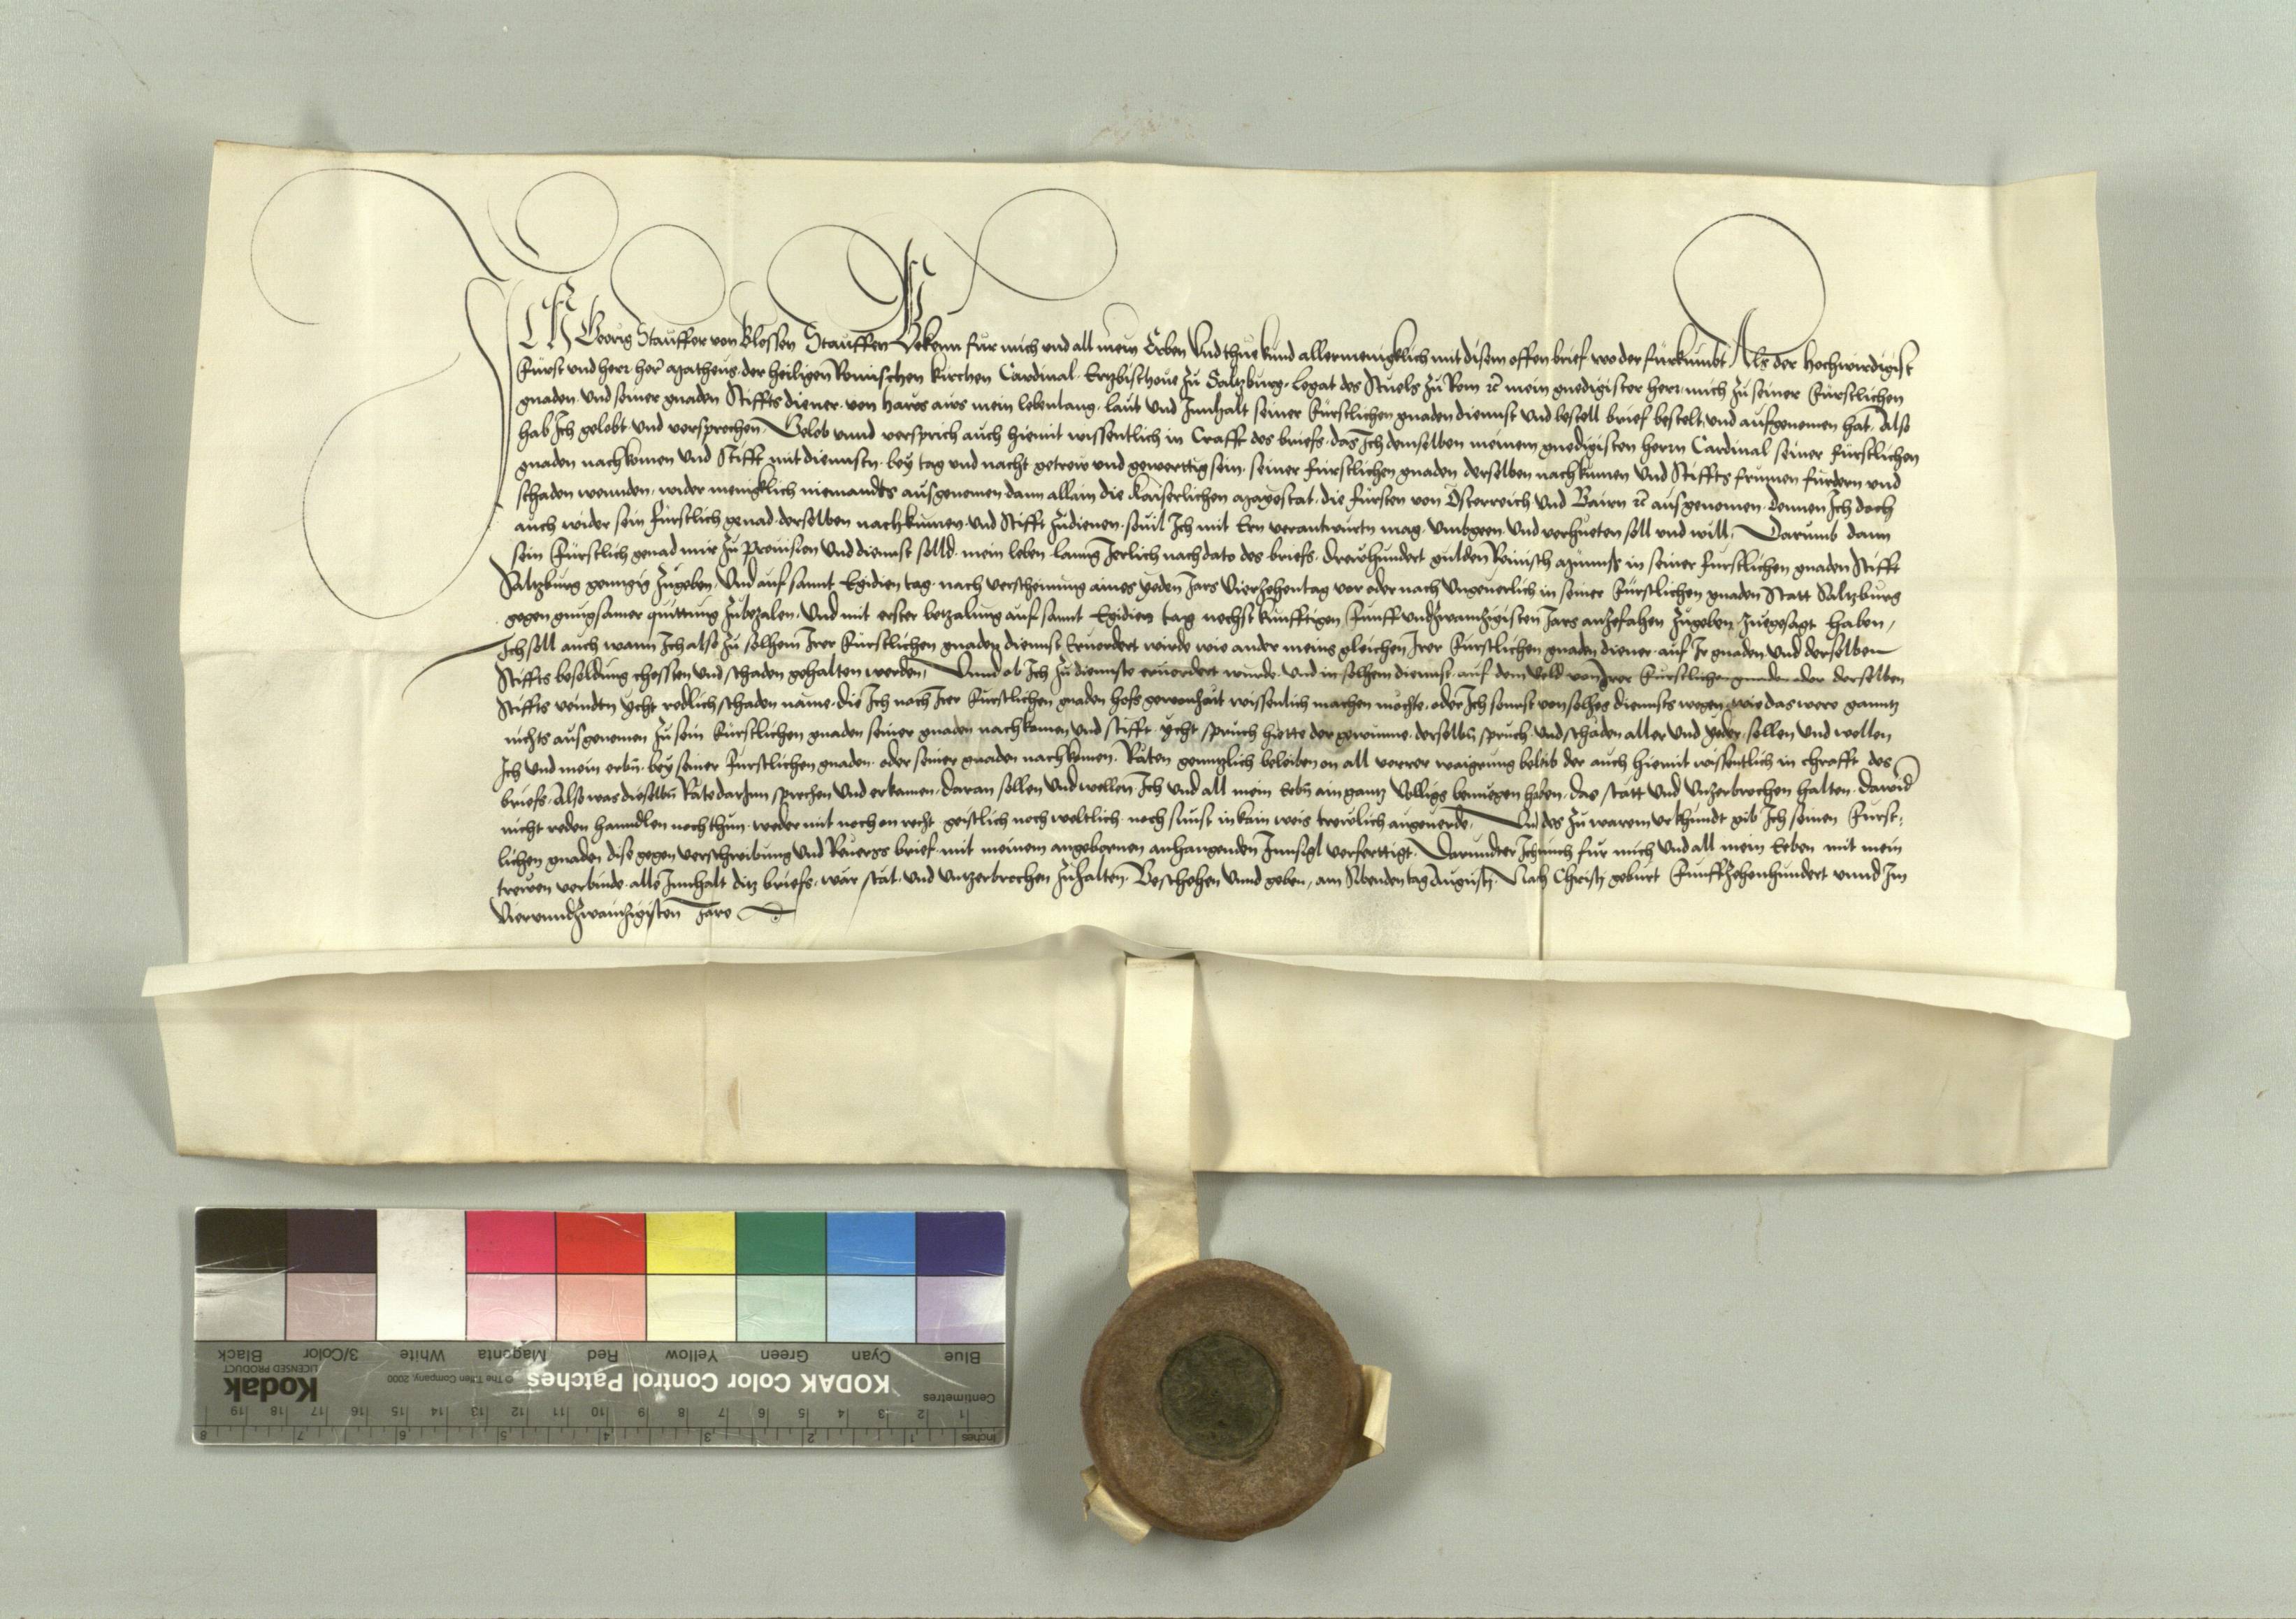 ICH Georig Stauffer von Blossen Stauffen Bekenn für mich und all mein Erben Und thue kund allermenigklich mit disem offen brief wo der fürkumbt Als der Hochwirdigist
Fürst und herr her Matheus der heiligen Römischen kirchen Cardinal Ertzbischove zu Saltzburg Legat des Stuels zu Rom etc mein gnedigister herr mich zu seiner Fürstlichen
gnaden und seiner gnaden Stiffts diener von haws aws mein lebenlang laut und Innhalt seiner Fürstlichen gnaden diennst und bestell brief bestelt und aufgenomen hat Also
hab Ich gelobt und versprochen Gelob unnd versprich auch hiemit wissentlich in Crafft des briefs das Ich demselben meinem gnedigisten herrn Cardinal seiner Fürstlichen
gnaden nachkomen und Stifft mit diennstn bey tag und nacht getrew und gewerttig sein seiner Fürstlichen gnaden derselben nachkumen und Stiffts frumen fürdern und
schaden wennden wider menigklich niemandts ausgenomen dann allain die Kaiserlichen Mayestat die Fürsten von Österreich und Bairn etc ausgenomen dennen Ich doch
auch wider sein Fürstlich genad derselben nachkumen und Stifft zudienen sovil Ich mit Ern verantwurtn mag umbgeen und verhueten soll und will Darumb dann
sein Fürstlich genad mir zu Provision und diennst solld mein leben lanng Jerlich nach dato des briefs drewhundert gulden Reinisch Münnß in seiner Fürstlichen gnaden Stifft
Saltzburg genngig zugeben Und auf sannt Egidien tag nach verscheinung aines yeden Jars Vierzehentag vor oder nach ungeuerlich in seiner Fürstlichen gnaden Statt Saltzburg
gegen gnugsamer quittung zubezalen Und mit erster betzalung auf sannt Egidien tag nechst künfftigen Funffundzwainzigisten Jars anzefahen zugeben zuegesagt haben
Ich soll auch wann Ich also zu solhem Irer Fürstlichen gnaden diennst Ervordert wirde wie ander meins gleichen Irer Fürstlichen gnaden diener auf Ir gnaden und derselben
Stiffts besoldung chossten und schaden gehalten werden Unnd ob Ich zu diennste ervordert wurde und in solhem diennst auf dem Veld von Irer Fürstlichen gnaden oder derselben
Stiffts veindtn ycht redlich schaden näme die Ich nach Irer Fürstlichen gnaden hofs gewonhait wissenlich machen möchte oder Ich sonnst von solhes diennsts wegen wie das were ganntz
nichts ausgenomen zu sein Fürstlichen gnaden seiner gnaden nachkomen und stifft ycht spruch hiette der gewinne derselbn spruch und schäden aller und yeder sollen und wellen
Ich und mein erbn bey seiner Fürstlichen gnaden oder seiner gnaden nachkomen Räten genntzlich beleiben on all verrer waigrung beleib der auch hiemit wissentlich in chrafft des
briefs Also was dieselbn Räte darInn sprechen und erkennen daran sollen und wellen Ich und all mein Erbn ain gantz volligs benuegen haben das statt und unzerbrochen halten dawid
nicht reden hanndlen noch thun weder mit noch on recht geistlich noch weltlich noch sunst in kain weis trewlich angeuerde Und des zu warem urkhundt gib Ich seinen Fürst=
lichen gnaden dise gegen verschreibung und Reuerss brief mit meinem angebornen anhangenden Innsigl verferttigt Darundter Ich mich für mich und all mein Erben mit mein
trewen verbinde alls Innhalt ditz briefs war stät und unzerbrochen zuhalten Beschehen unnd geben am Sibenden tag Augusti Nach Christi geburt Funffzehenhundert unnd Im
Vierundzwainzigisten Jare
Blue
Cyan
Green
Yellow
Red
Magenta
White
3/Color
Black
KODAK Color Control Patches
© The Tiffen Company, 2000
Kodak
LICENSED PRODUCT
Centimetres
1 2 3 4 5 6 7 8 9 10 11 12 13 14 15 16 17 18 19
Inches 1 2 3 4 5 6 7 8